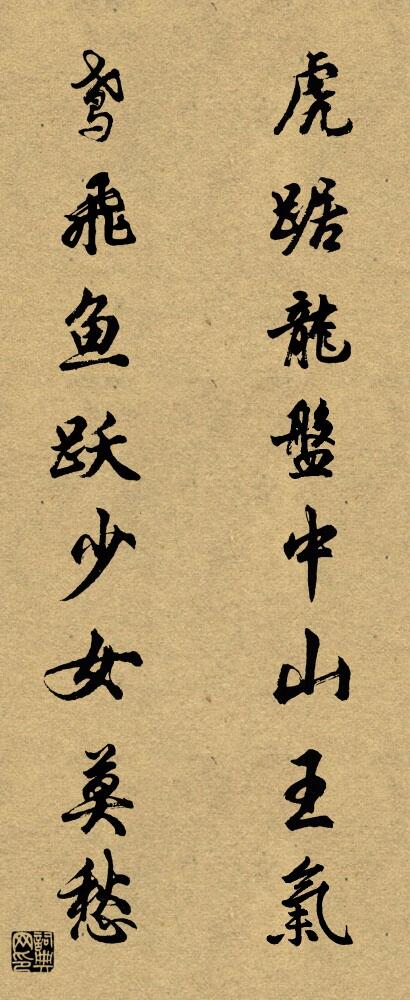 虎踞龍盤中山王氣
鸢飛鱼跃少女莫愁
詞典网印